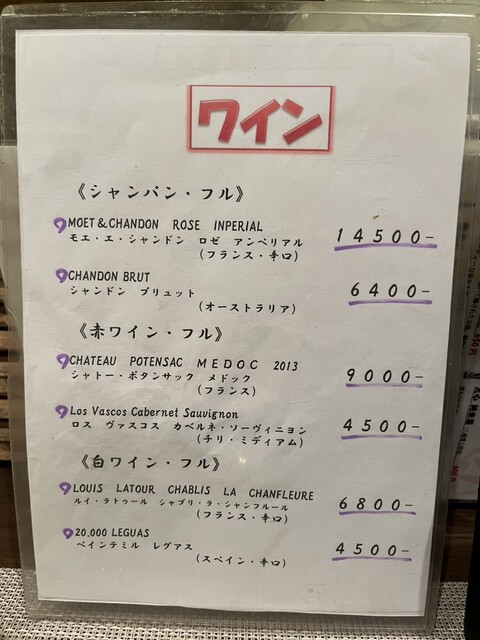 ワイン
《シャンパン・フル》
MOET&CHANDON ROSE INPERIAL 14500-
モエ・エ・シャンドン ロゼ アンペリアル
(フランス・辛口)
CHANDON BRUT 6400-
シャンドン ブリュット
(オーストラリア)
《赤ワイン・フル》
CHATEAU POTENSAC MEDOC 2013 9000-
シャトー・ポタンサック メドック
(フランス)
Los Vascos Cabernet Sauvignon 4500-
ロス ヴァスコス カベルネ・ソーヴィニヨン
(チリ・ミディアム)
《白ワイン・フル》
LOUIS LATOUR CHABLIS LA CHANFLEURE 6800-
ルイ・ラトゥール シャブリ・ラ・シャンフルール
(フランス・辛口)
20,000 LEGUAS 4500-
ベインテミル レグアス
(スペイン・辛口)